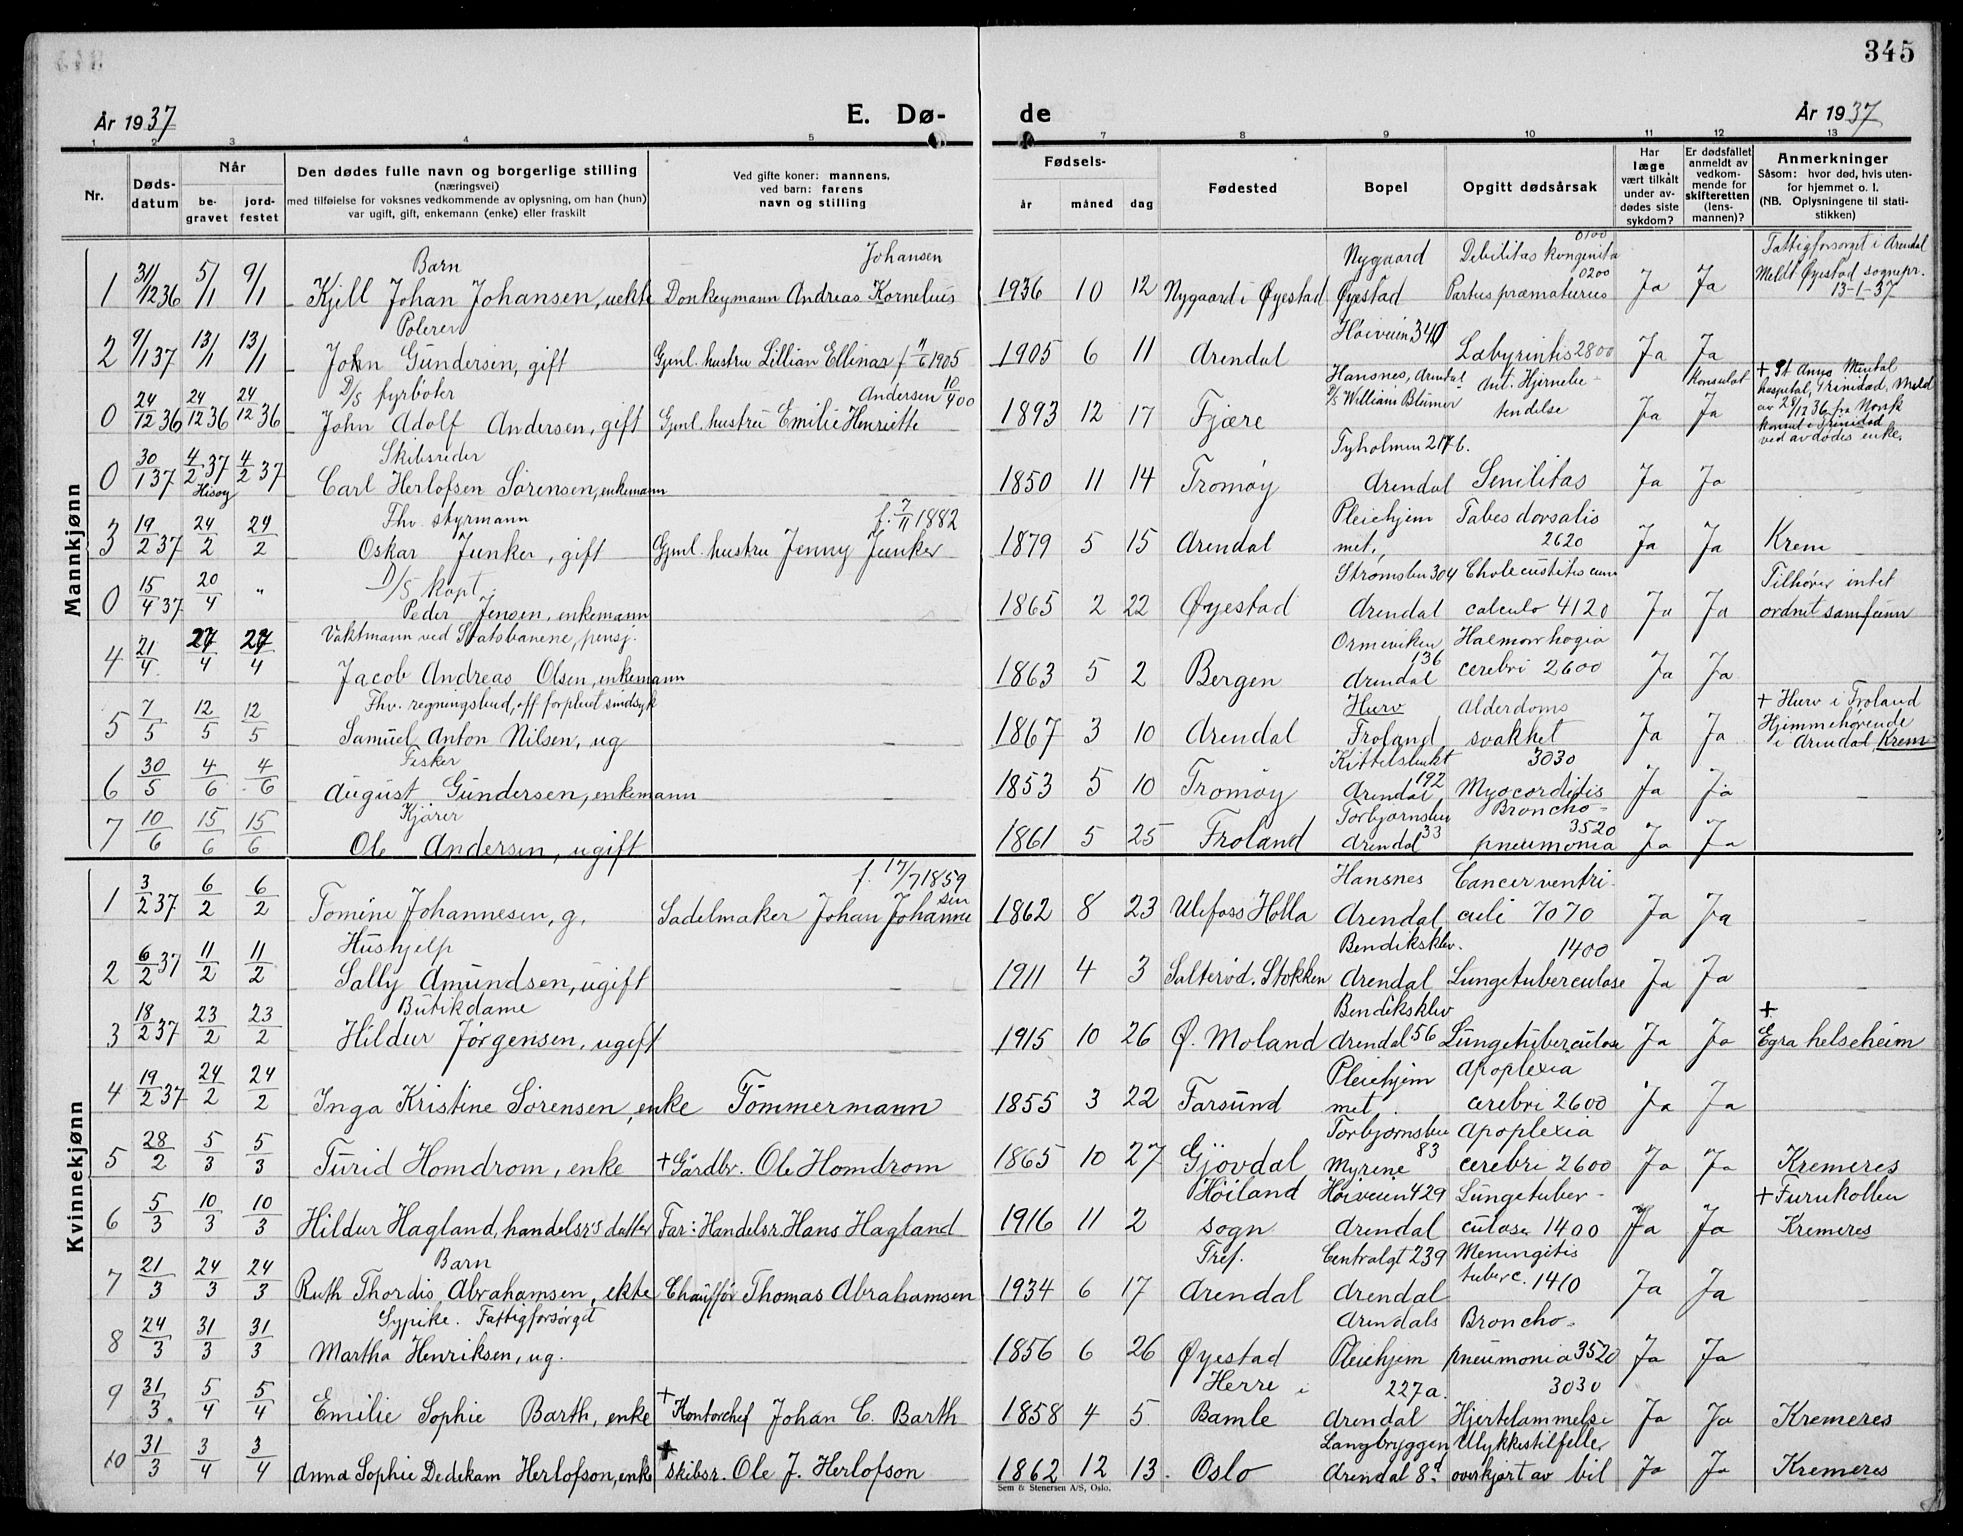 345
År 1937
E. Dø- de
År 1937
1 2 3 4 5 7 8 9 10 11 12 13
Nr.
Døds-datum
Når
be-gravet
jord-festet
Den dødes fulle navn og borgerlige stilling
(næringsvei)
med tilføielse for voksnes vedkommende av oplysning, om han (hun)
var ugift, gift, enkemann (enke) eller fraskilt
Ved gifte koner: mannens,
ved barn: farens
navn og stilling
Fødsels-
år måned dag
Fødested
Bopel
Opgitt dødsårsak
Har læge vært tilkalt under av-dødes siste sykdom?
Er dødsfallet anmeldt av vedkom-mende for skifteretten (lens-mannen)?
Anmerkninger
Såsom: hvor død, hvis uten-
for hjemmet o. l.
(NB. Oplysningene til stati-
stikken)
Mannkjønn
1 31/12 36 5/1 9/1 Barn Kjell Johan Johansen, uekte Donkeymann Andreas Kornelius Johansen 1936 10 12 Nygaard i Øyestad Nygaard Øyestad Debilitas kongenita 0100 Partus præmaturus 0200 Ja Ja Fattigforsorget i Arendal Meldt Øyestad sognepr. 13-1-37
2 9/1 37 13/1 13/1 Polerer John Gundersen, gift Gjenl. hustru Lillian Ellinar f 9/6 1905 1905 6 11 Arendal Høiveien 340 Labyrintis 2800 Ja Ja
0 24/12 36 24/12 36 24/12 36 D/S fyrbøter John Adolf Andersen, gift Gjenl. hustru Emilie Henriette Andersen 10/4 00 1893 12 17 Fjære Hansnes, Arendal D/S William Blumer Ant. Hjernebe-tendelse Ja Konsulat Ja + St Anns Mental hospital, Trinidad. Meld av 28/12 36 fra Norsk konsul i Trinidad ved avdødes enke.
0 30/1 37 4/2 37 Hisøy 4/2 37 Skibsreder Carl Herlofsen Sørensen, enkemann 1850 11 14 Tromøy Tyholmen 217 b. Arendal Senilitas Ja Ja
3 19/2 37 24/2 24/2 Fhv. styrmann Oskar Junker, gift Gjenl. hustru Jenny Junker f. 7/11 1882 1879 5 15 Arendal Pleiehjem met, Tabes dorsalis 2620 Ja Ja Krem
0 15/4 37 20/4 " D/S kapt. Peder Jensen, enkemann 1865 2 22 Øyestad Strømsbu 304 Arendal Cholecustitis cum calculo 4120 Ja Ja Tilhører intet ordnet samfunn
4 21/4 27/4 27/4 Vaktmann ved Statsbanene, pensj. Jacob Andreas Olsen, enkemann 1863 5 2 Bergen Ormeviken 136 Arendal Haemorrhagia cerebri 2600 Ja Ja
5 7/5 12/5 12/5 Fhv. regningsbud, off forpleiet sindsyk Samuel Anton Nilsen, ug 1867 3 10 Arendal Hurv Froland Alderdoms svakhet Ja Ja + Hurv i Froland Hjemmehørende i Arendal, Krem
6 30/5 4/6 4/6 Fisker August Gundersen, enkemann 1853 5 10 Tromøy Kittelsbukt 192 Arendal 3030 Myocorditis Ja Ja
7 10/6 15/6 15/6 Kjører Ole Andersen, ugift 1861 5 25 Froland Torbjørnsbu 33 Arendal Broncho-pneumonia 3520 Ja Ja
Kvinnekjønn
1 3/2 37 6/2 6/2 Tomine Johannesen, g, Sadelmaker Johan Johannesen f. 17/7 1859 1862 8 23 Ulefoss Holla Hansnes Arendal Cancer ventri-culi 7070 Ja Ja
2 6/2 37 11/2 11/2 Hushjelp Sally Amundsen, ugift 1911 4 3 Salterød. Stokken Bendiksklev. Arendal 1400 Lungetuberculose Ja Ja
3 18/2 37 23/2 23/2 Butikdame Hildur Jørgensen, ugift 1915 10 26 Ø. Moland Bendiksklev Arendal 56 Lungetuberculose Ja Ja + Egra helseheim
4 19/2 37 24/2 24/2 Inga Kristine Sørensen, enke Tømmermann 1855 3 22 Farsund Pleiehjem met. Apoplexia cerebri 2600 Ja Ja
5 28/2 5/3 5/3 Turid Homdrom, enke + Gårdbr. Ole Homdrom 1865 10 27 Gjøvdal Torbjørnsbu Myrene 83 Apoplexia cerebri 2600 Ja Ja Kremeres
6 5/3 10/3 10/3 Hildur Hagland, handelsr's datter Far: Handelsr. Hans Hagland 1916 11 2 Høiland sogn Høiveien 429 Arendal Lungetuber-culose 1400 Ja Ja + Furukollen Kremeres
7 21/3 24/3 24/3 Barn Ruth Thordis Abrahamsen, ekte Chauffør Thomas Abrahamsen 1934 6 17 Tref. Arendal Centralgt 239 Arendal Meningitis tuberc. 1410 Ja Ja
8 24/3 31/3 31/3 Sypike. Fattigforsørget Martha Henriksen, ug. 1856 6 26 Øyestad Arendals Pleiehjem Broncho-pneumonia 3520 Ja Ja
9 31/3 5/4 5/4 Emilie Sophie Barth, enke + Kontorchef Johan C. Barth 1858 4 5 Herre i Bamle 227a. Arendal 3030 Hjertelammelse Ja Ja Kremeres
10 31/3 3/4 3/4 Anna Sophie Dedekam Herlofson, enke + skibsr. Ole J. Herlofson 1862 12 13 Oslo Langbryggen Arendal 8d Ulykkestilfelle, overkjørt av bil Ja Ja Kremeres
Sem & Stenersen A/S, Oslo.